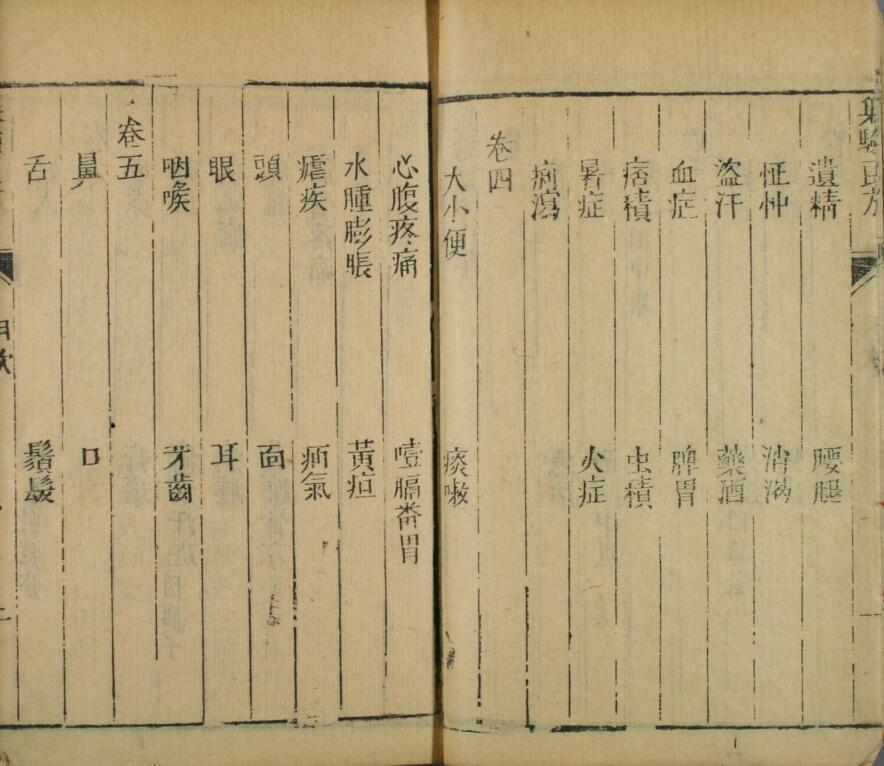 集驗良方
遺精 腰腿
怔忡 消渴
盜汗 藥酒
血症 脾胃
痞積 虫積
暑症 火症
痢瀉
卷四
大小便 痰嗽
心腹疼痛 噎膈畨胃
水腫膨脹 黃疸
瘧疾 疝氣
頭 面
眼 耳
咽喉 牙齒
卷五
鼻 口
舌 鬚髮